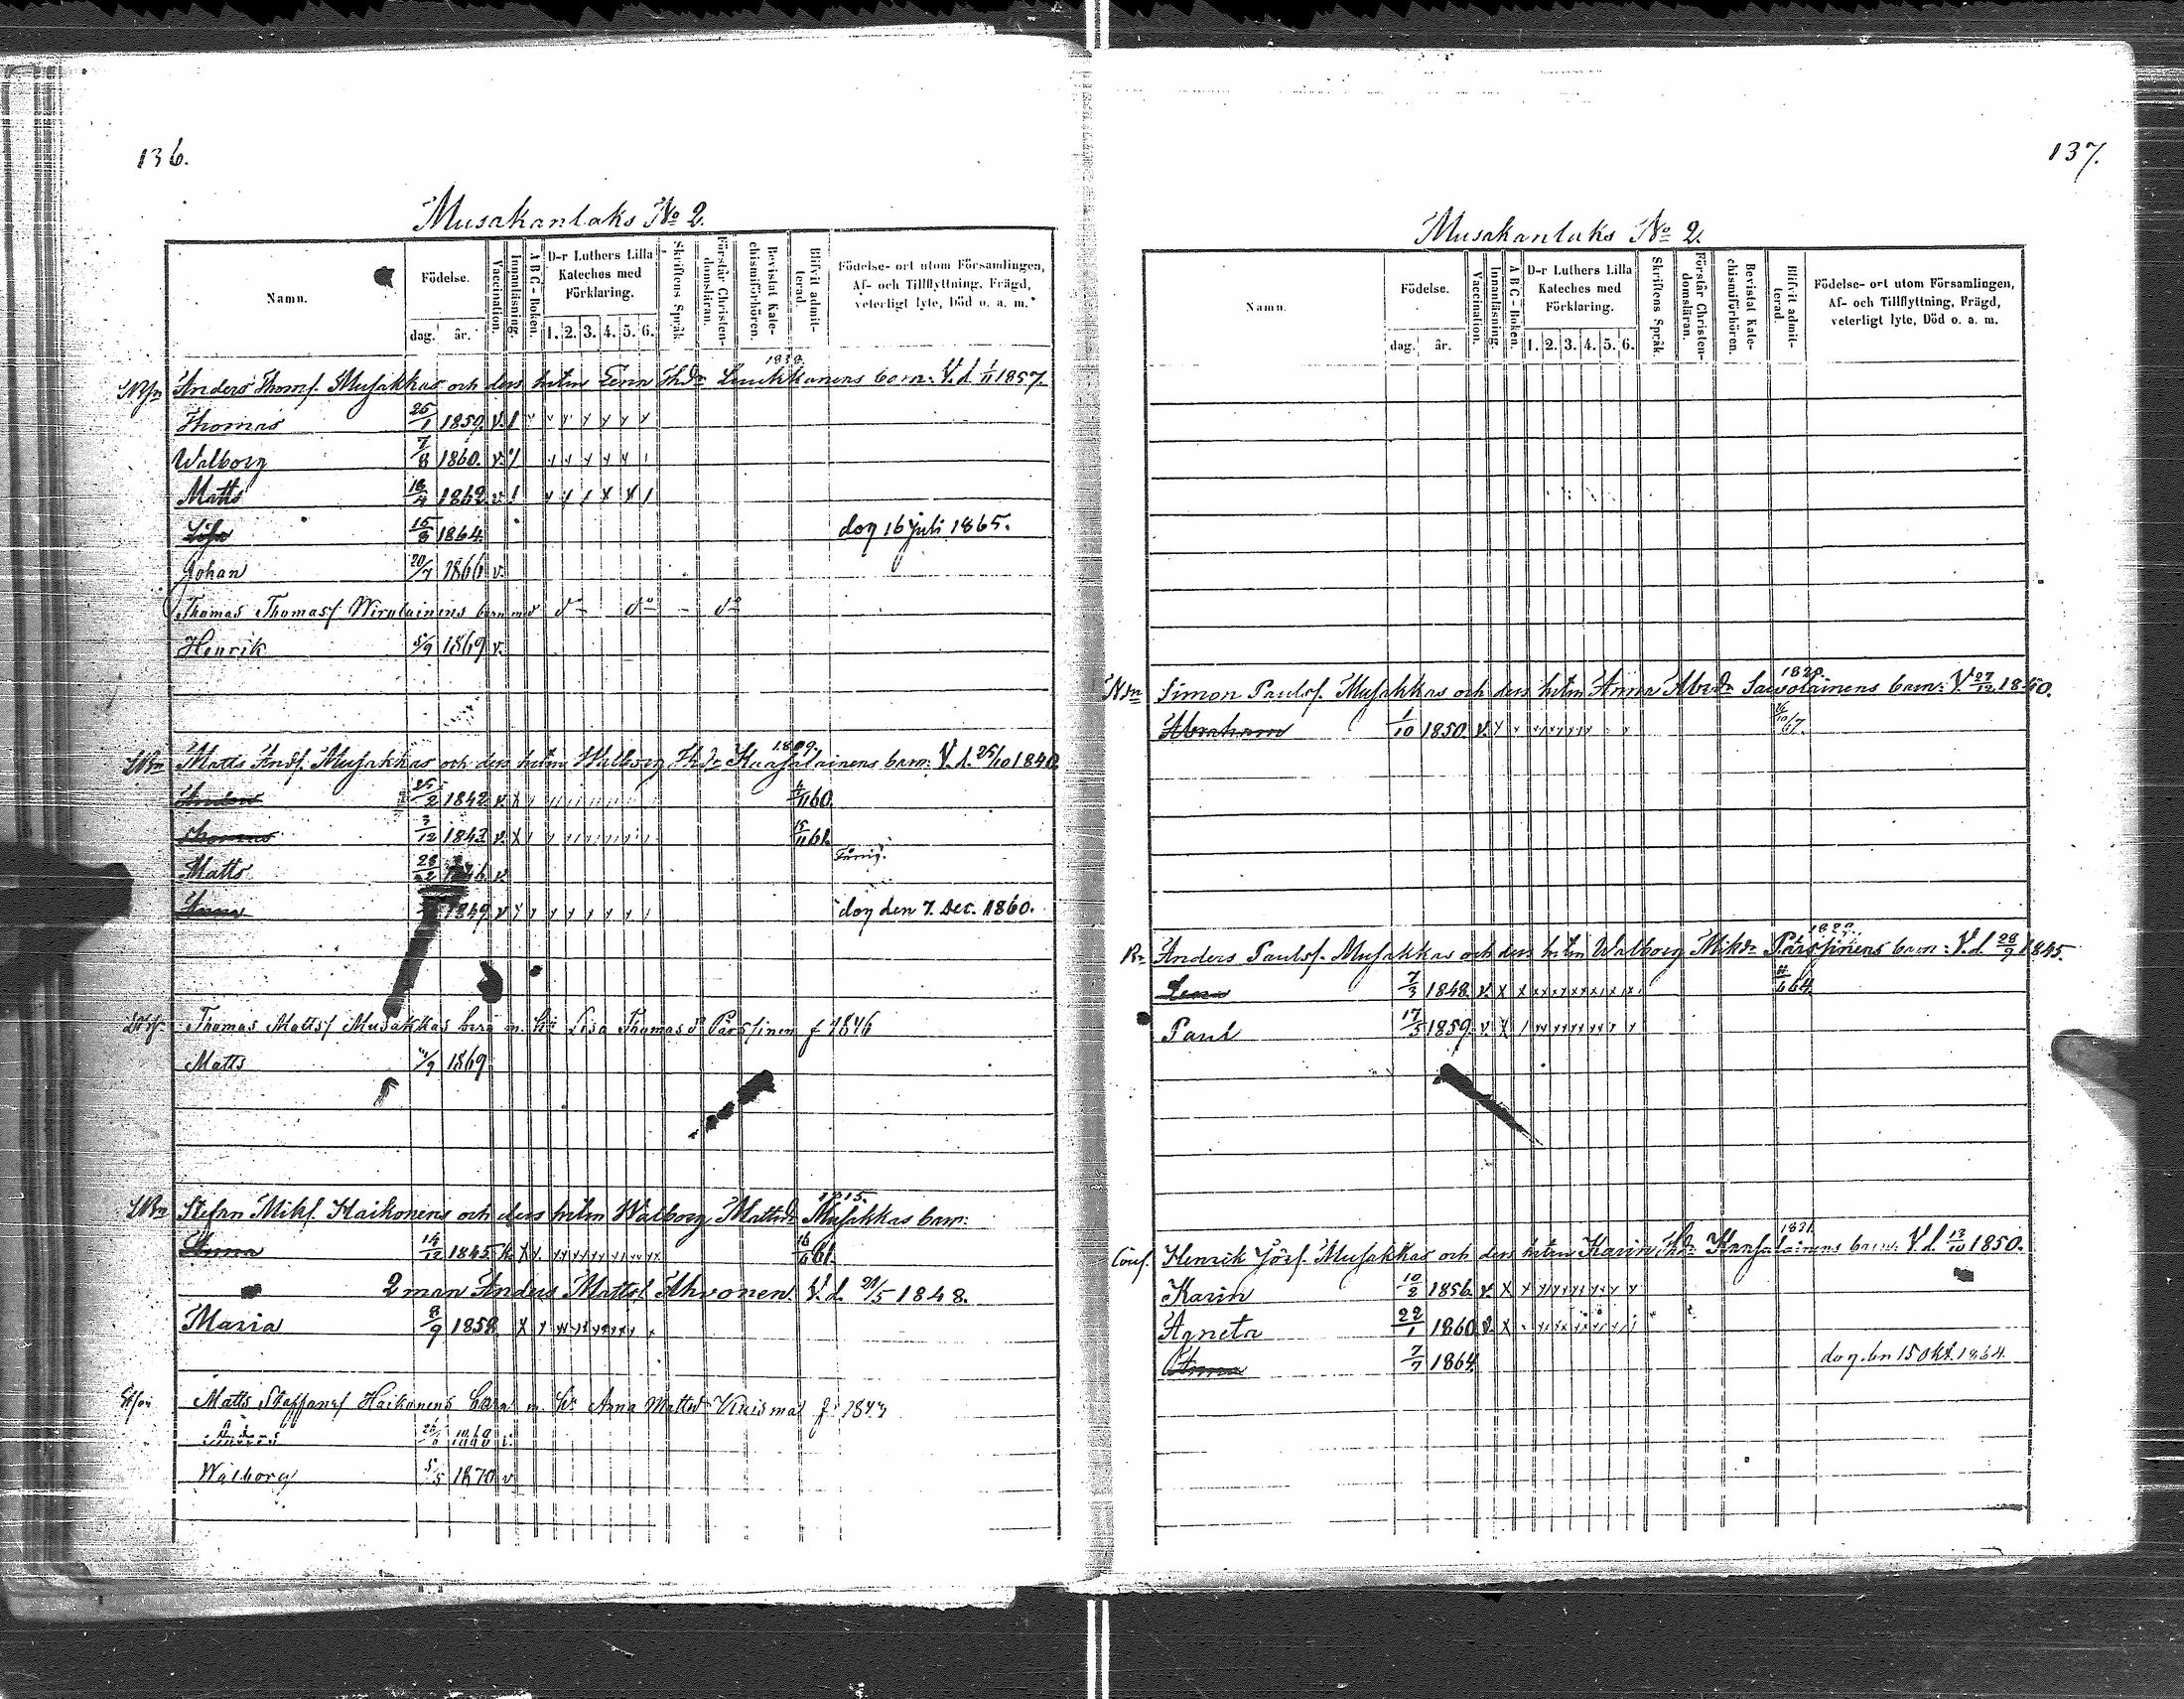 136.
Musakanlaks No 2.
Namn.
Födelse.
dag.
år.
Vaccination.
Innanläsning.
A B C - Boken.
D-r Luthers Lilla
Kateches med
Förklaring.
1. 2. 3. 4. 5. 6.
Skriftens Språk
Förstår Christen-
domsläran.
Bevistat Kate-
chismiförhören.
Blifvit admit-
terad.
Födelse- ort utom Församlingen,
Af- och Tillflyttning, Frägd,
veterligt lyte, Död o. a. m.
1838.
Anders Thoms. Musakkas och dess hstru Lena Thdr Luukkanens barn: V. d. 1/11 1857.
Thomas 25/1 1859. v.
Walborg 7/8 1860. v.
Matts 18/4 1862. v.
Lisa 15/8 1864. dog 16 juli 1865.
Johan 20/7 1866 v.
Thomas Thomass Wirolainens barn med do - do - do
Henrik 5/9 1869 v.
1809.
Matts Ands. Musakkas och dess hstru Walborg Thdr Kaasalainens barn: V. d. 25/10 1840.
Anders 25/2 1842 v. X 60.
Thomas 3/12 1843 v. X 15/11 61.
Matts v.
Anna 1849 v dog den 7. Dec. 1860.
Thomas Mattss Musakkas barn m. hu Lisa Thomas d. Pärssinen f 1846
Matts 1869
1815.
Stefan Miks. Haikonens och dess hstru Walborg Mattsdr Musakkas barn:
Anna 14/12 1845 61.
2 man Anders Mattss. Ahvonen. V. d. 21/5 1848.
Maria 8/9 1858
Matts Staffanss Haikonens barn m. hu Anna Mattsd
Walborg 5/5 1870 v
137.
Musakanlaks No 2.
Namn.
Födelse.
dag.
år.
Vaccination.
Innanläsning.
A B C - Boken.
D-r Luthers Lilla
Kateches med
Förklaring.
1. 2. 3. 4. 5. 6.
Skriftens Språk
Förstår Christen-
domsläran.
Bevistat Kate-
chismiförhören.
Blifvit admit-
terad.
Födelse- ort utom Församlingen,
Af- och Tillflyttning, Frägd,
veterligt lyte, Död o. a. m.
1820.
Simon Paulss. Musakkas och dess hstru Anna Abrdr Sawolainens barn: V. 27/12 1840.
Abraham 1/10 1850. v. 67.
Anders Paulss. Musakkas och dess hstru Walborg Mikdr Pärssinens barn: V. d. 28/9 1845.
Lena 7/3 1848. v. X X 64.
Paul 17/5 1859. v. X
1831.
Henrik Jörs. Musakkas och dess hstru Karin Thdr Kaasalainens barn: V. d. 13/10 1850.
Karin 10/2 1856. v. X
Agneta 22/1 1860. v. X
Anna 7/7 1864. dog. en 15 Okt. 1864.